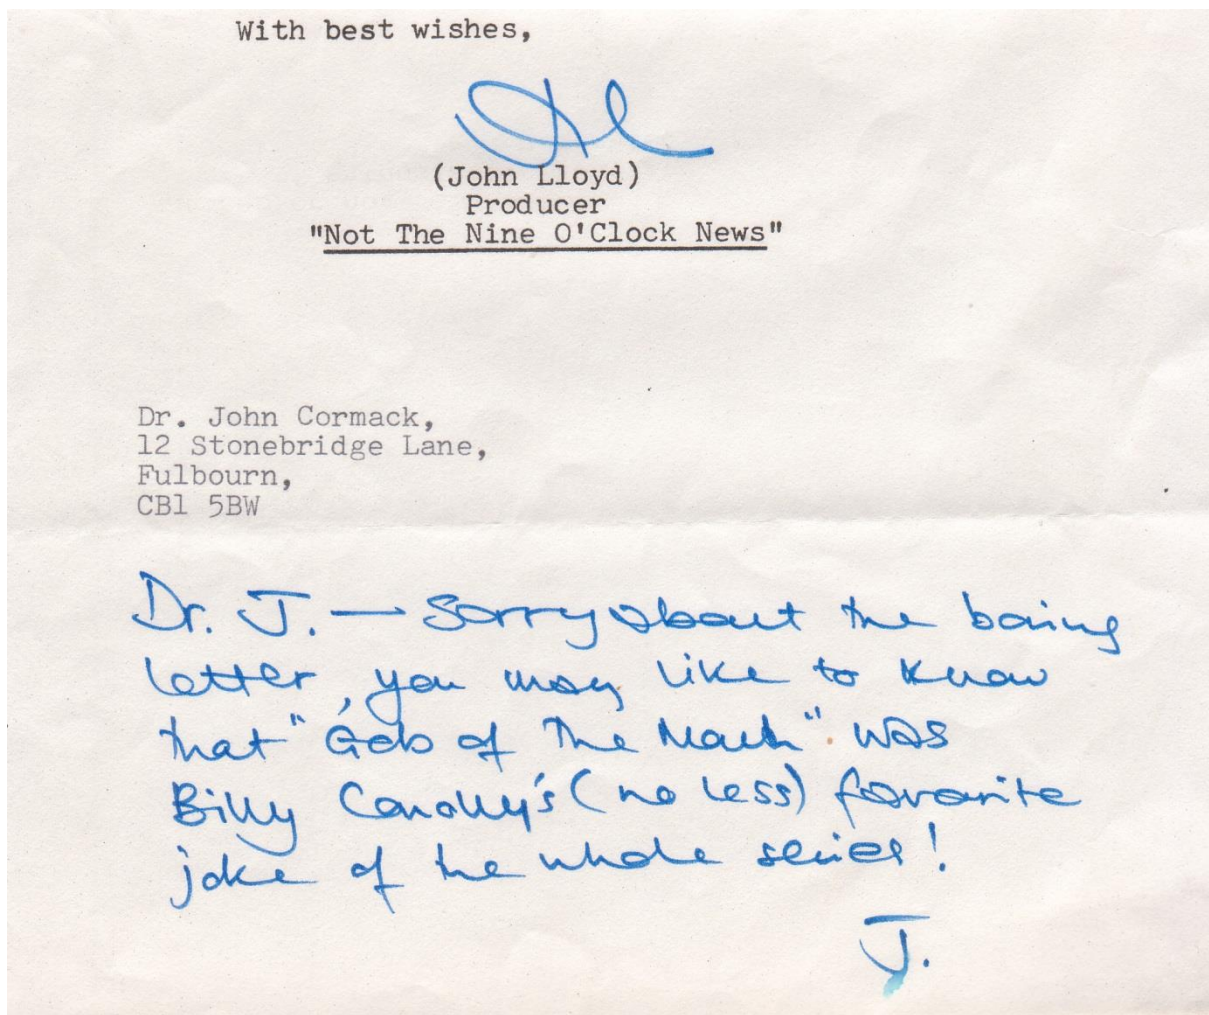 With best wishes,
(John Lloyd)
Producer
"Not The Nine O'Clock News"
Dr. John Cormack,
12 Stonebridge Lane,
Fulbourn,
CB1 5BW
Dr. J. — Sorry about the boring
letter, you may like to know
that "Gob of The Month" was
Billy Conolly's (no less) favorite
joke of the whole series!
J.